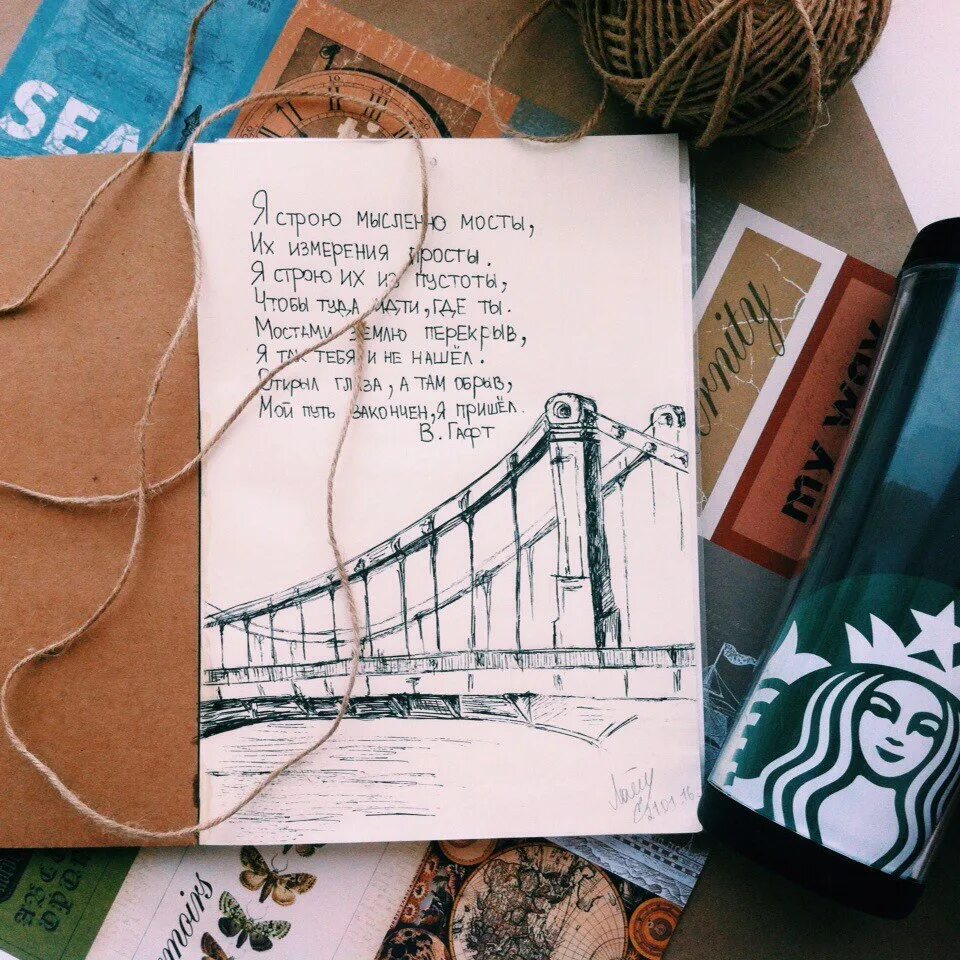 SEA
Я строю мысленно мосты,
Их измерения просты.
Я строю их из пустоты,
Чтобы туда идти, где ты.
Мостами землю перекрыв,
Я так тебя и не нашёл.
Открыл глаза, а там обрыв,
Мой путь закончен, я пришёл.
В. Гафт
my way
21.01.16.